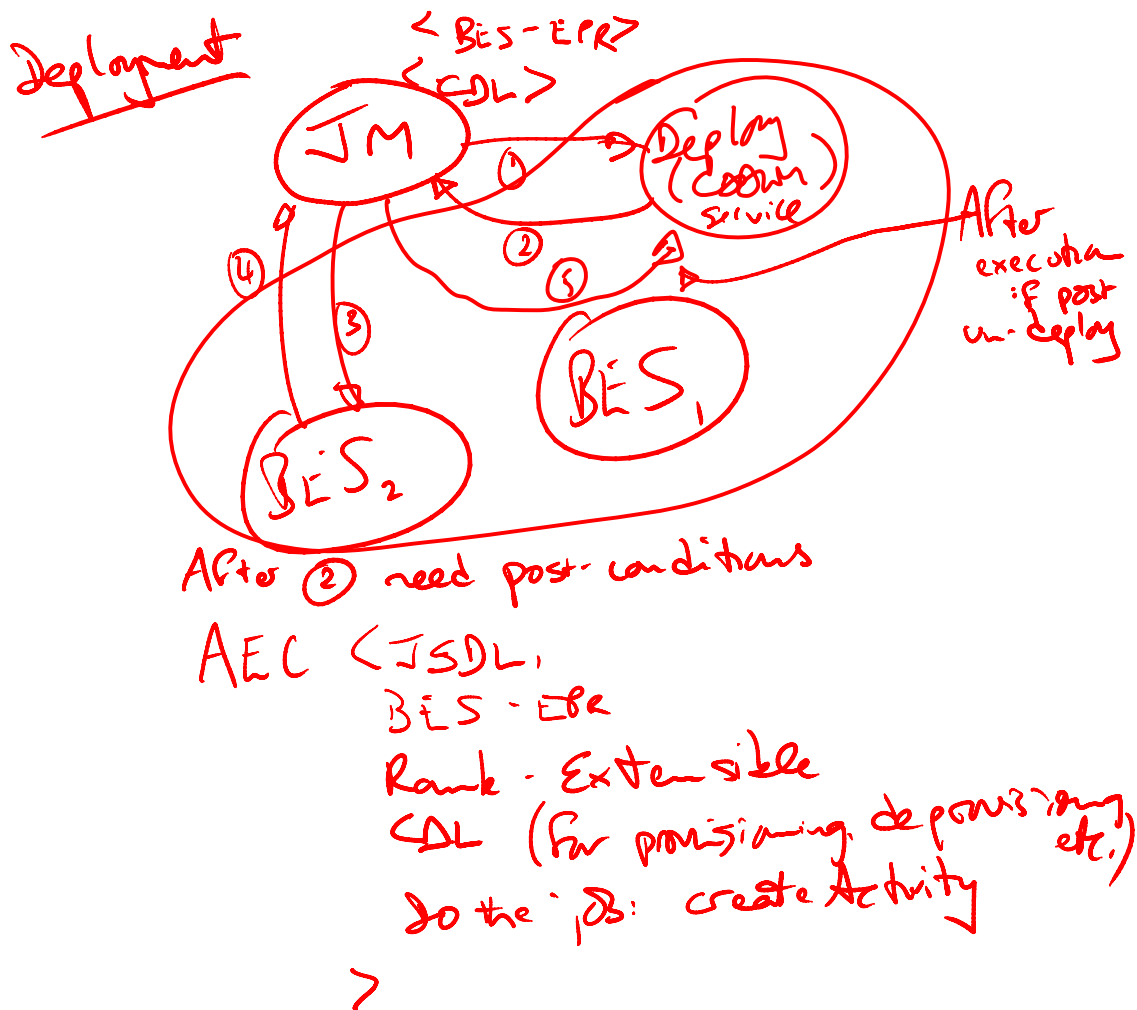 Deployment
<BES-EPR>
<CDL>
JM
Deploy
(CDDLM)
service
1
2
After
execution
if post
un-deploy
4
5
3
BES1
BES2
After 2 need post-conditions
AEC <JSDL,
BES-EPR
Rank - Extensible
CDL (for provisioning, deprovisioning, etc.)
Do the job: createActivity
>